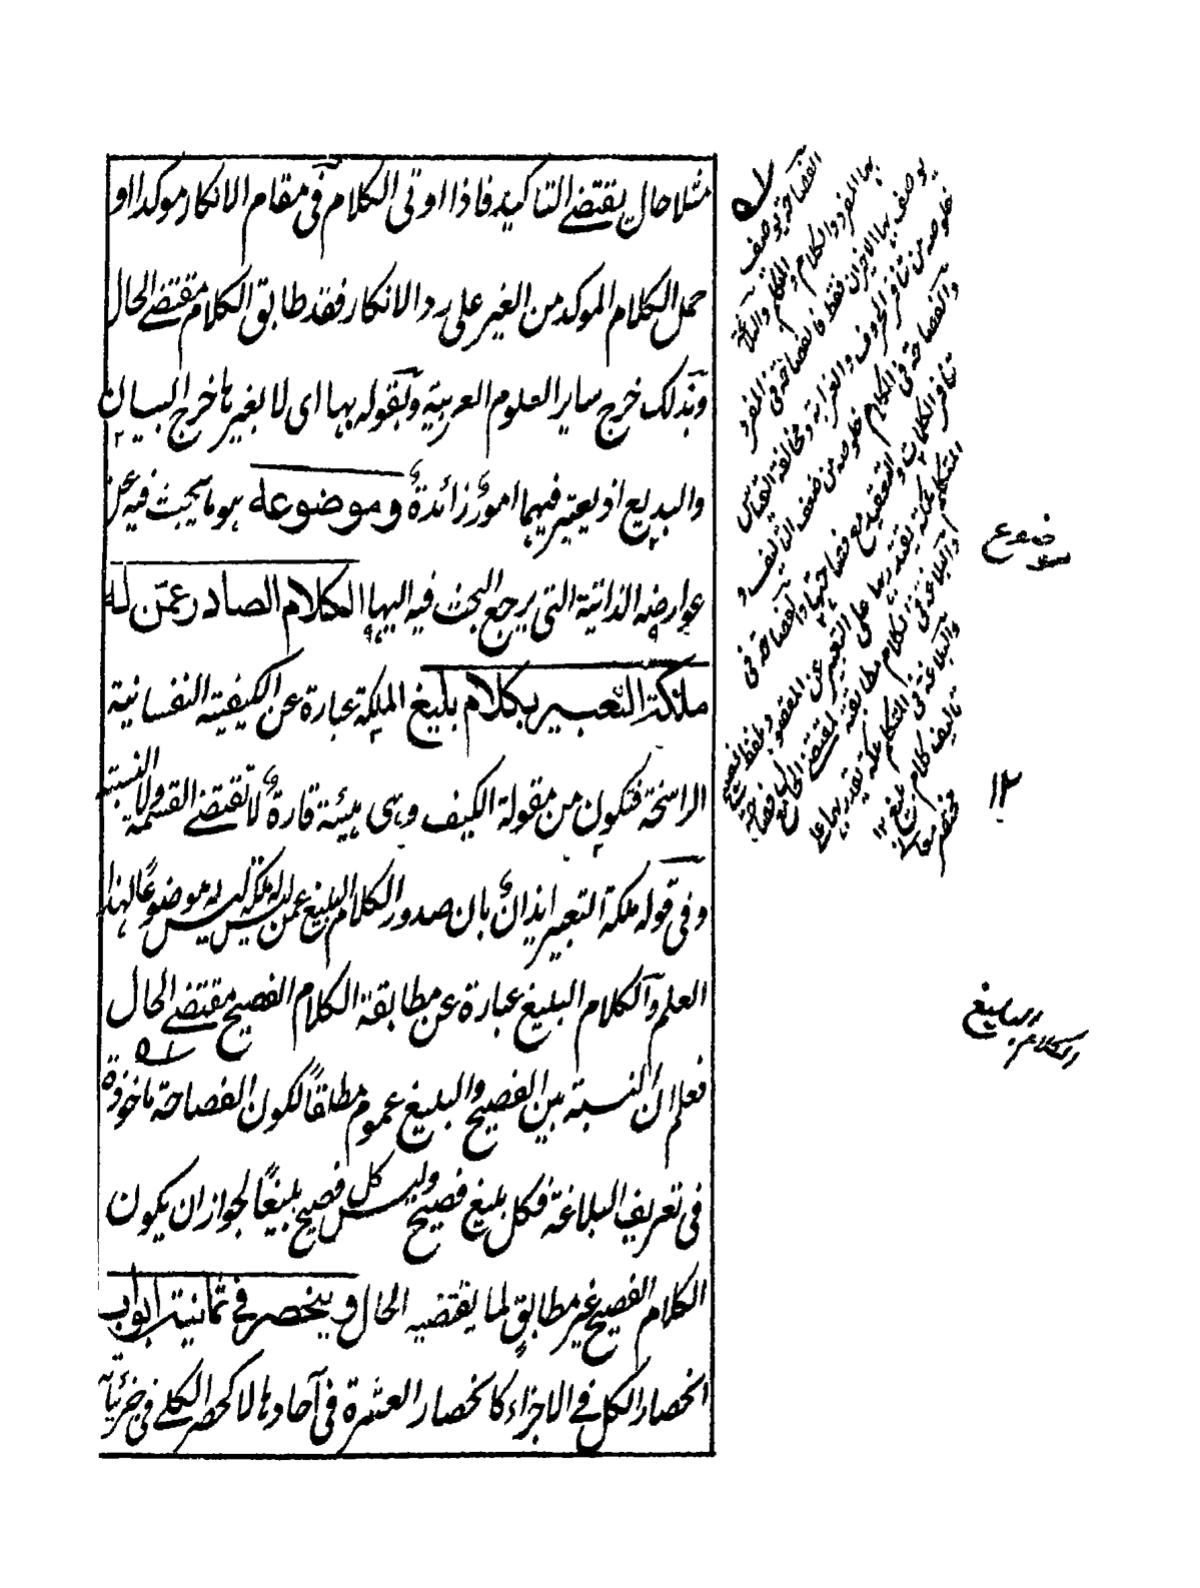 مثلا حال يقتضى التاكيد فاذا اوتى الكلام فى مقام الانكار موكدا او
حمل الكلام الموكد من الغير على رد الانكار فقد طابق الكلام مقتضى الحال
وبذلك خرج ساير العلوم العربية وبقوله بها اى لا بغيرها خرج البيان
والبديع اذ يعتبر فيهما امور زائدة وموضوعه هو ما يبحث فيه عن
عوارضه الذاتية التى يرجع البحث فيه اليها الكلام الصادر عمن له
ملكة التعبير بكلام بليغ الملكة عبارة عن الكيفية النفسانية
الراسخة فتكون من مقولة الكيف وهى هيئة قارة لا تقتضى القسمة ولا النسبة
وفى قوله ملكة التعبير ايذان بان صدور الكلام البليغ عمن ليس له ملكة ليس موضوعا لهذا
العلم والكلام البليغ عبارة عن مطابقة الكلام الفصيح مقتضى الحال
فعلم ان النسبة بين الفصيح والبليغ عموم مطلقا لكون الفصاحة ماخوذة
فى تعريف البلاغة فكل بليغ فصيح وليس كل فصيح بليغا لجواز ان يكون
الكلام الفصيح غير مطابق لما يقتضيه الحال وينحصر فى ثمانية ابواب
انحصار الكل فى الاجزاء كانحصار العشرة فى آحادها لا كحصر الكلى فى جزئياته
الفصاحة يوصف
بها المفرد والكلام والمتكلم والبلاغة
يوصف بها الاخيران فقط فالفصاحة فى المفرد
خلوصه من تنافر الحروف والغرابة ومخالفة القياس
والفصاحة فى الكلام خلوصه من ضعف التاليف و
تنافر الكلمات والتعقيد مع فصاحتها والفصاحة فى
المتكلم ملكة يقتدر بها على التعبير عن المقصود بلفظ فصيح
والبلاغة فى الكلام مطابقته لمقتضى الحال مع فصاحته
والبلاغة فى المتكلم ملكة يقتدر بها على
تاليف كلام بليغ ١٢
مختصر معانى
موضوع
١٢
الكلام البليغ